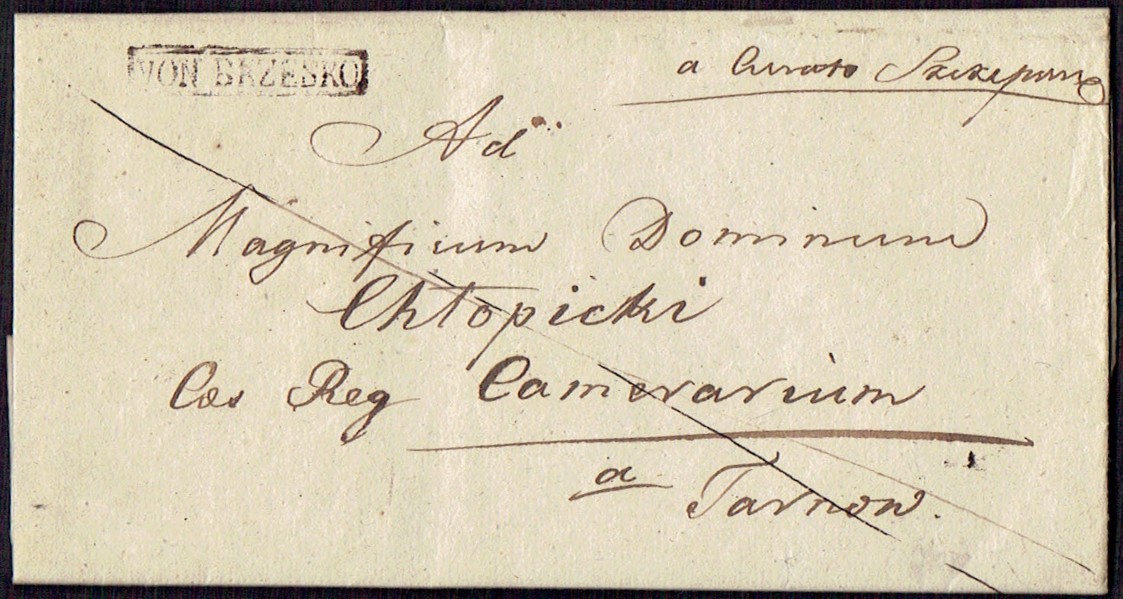 VON BRZESKO
a Curato Szczepan
Ad
Magnificum Dominum
Chłopicki
Cæs Reg Camerarium
a Tarnow.